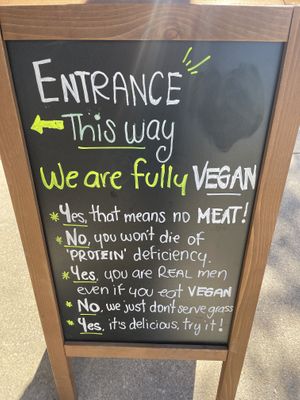 ENTRANCE
This way
We are fully VEGAN
* Yes, that means no MEAT!
* No, you won't die of
'PROTEIN' deficiency.
* Yes, you are REAL men
even if you eat VEGAN
* No, we just don't serve grass
* Yes, it's delicious, try it!